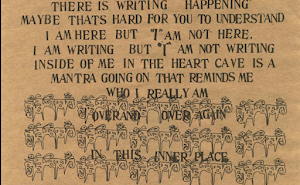 THERE IS WRITING HAPPENING
MAYBE THATS HARD FOR YOU TO UNDERSTAND
I AM HERE BUT "I" AM NOT HERE.
I AM WRITING BUT "I" AM NOT WRITING
INSIDE OF ME IN THE HEART CAVE IS A
MANTRA GOING ON THAT REMINDS ME
WHO I REALLY AM
OVER AND OVER AGAIN
IN THIS INNER PLACE